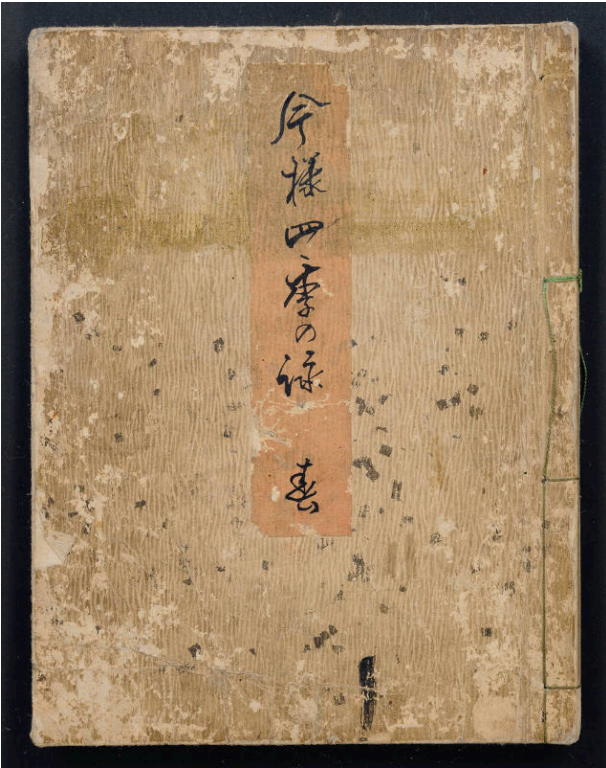 今様四季の詠 春